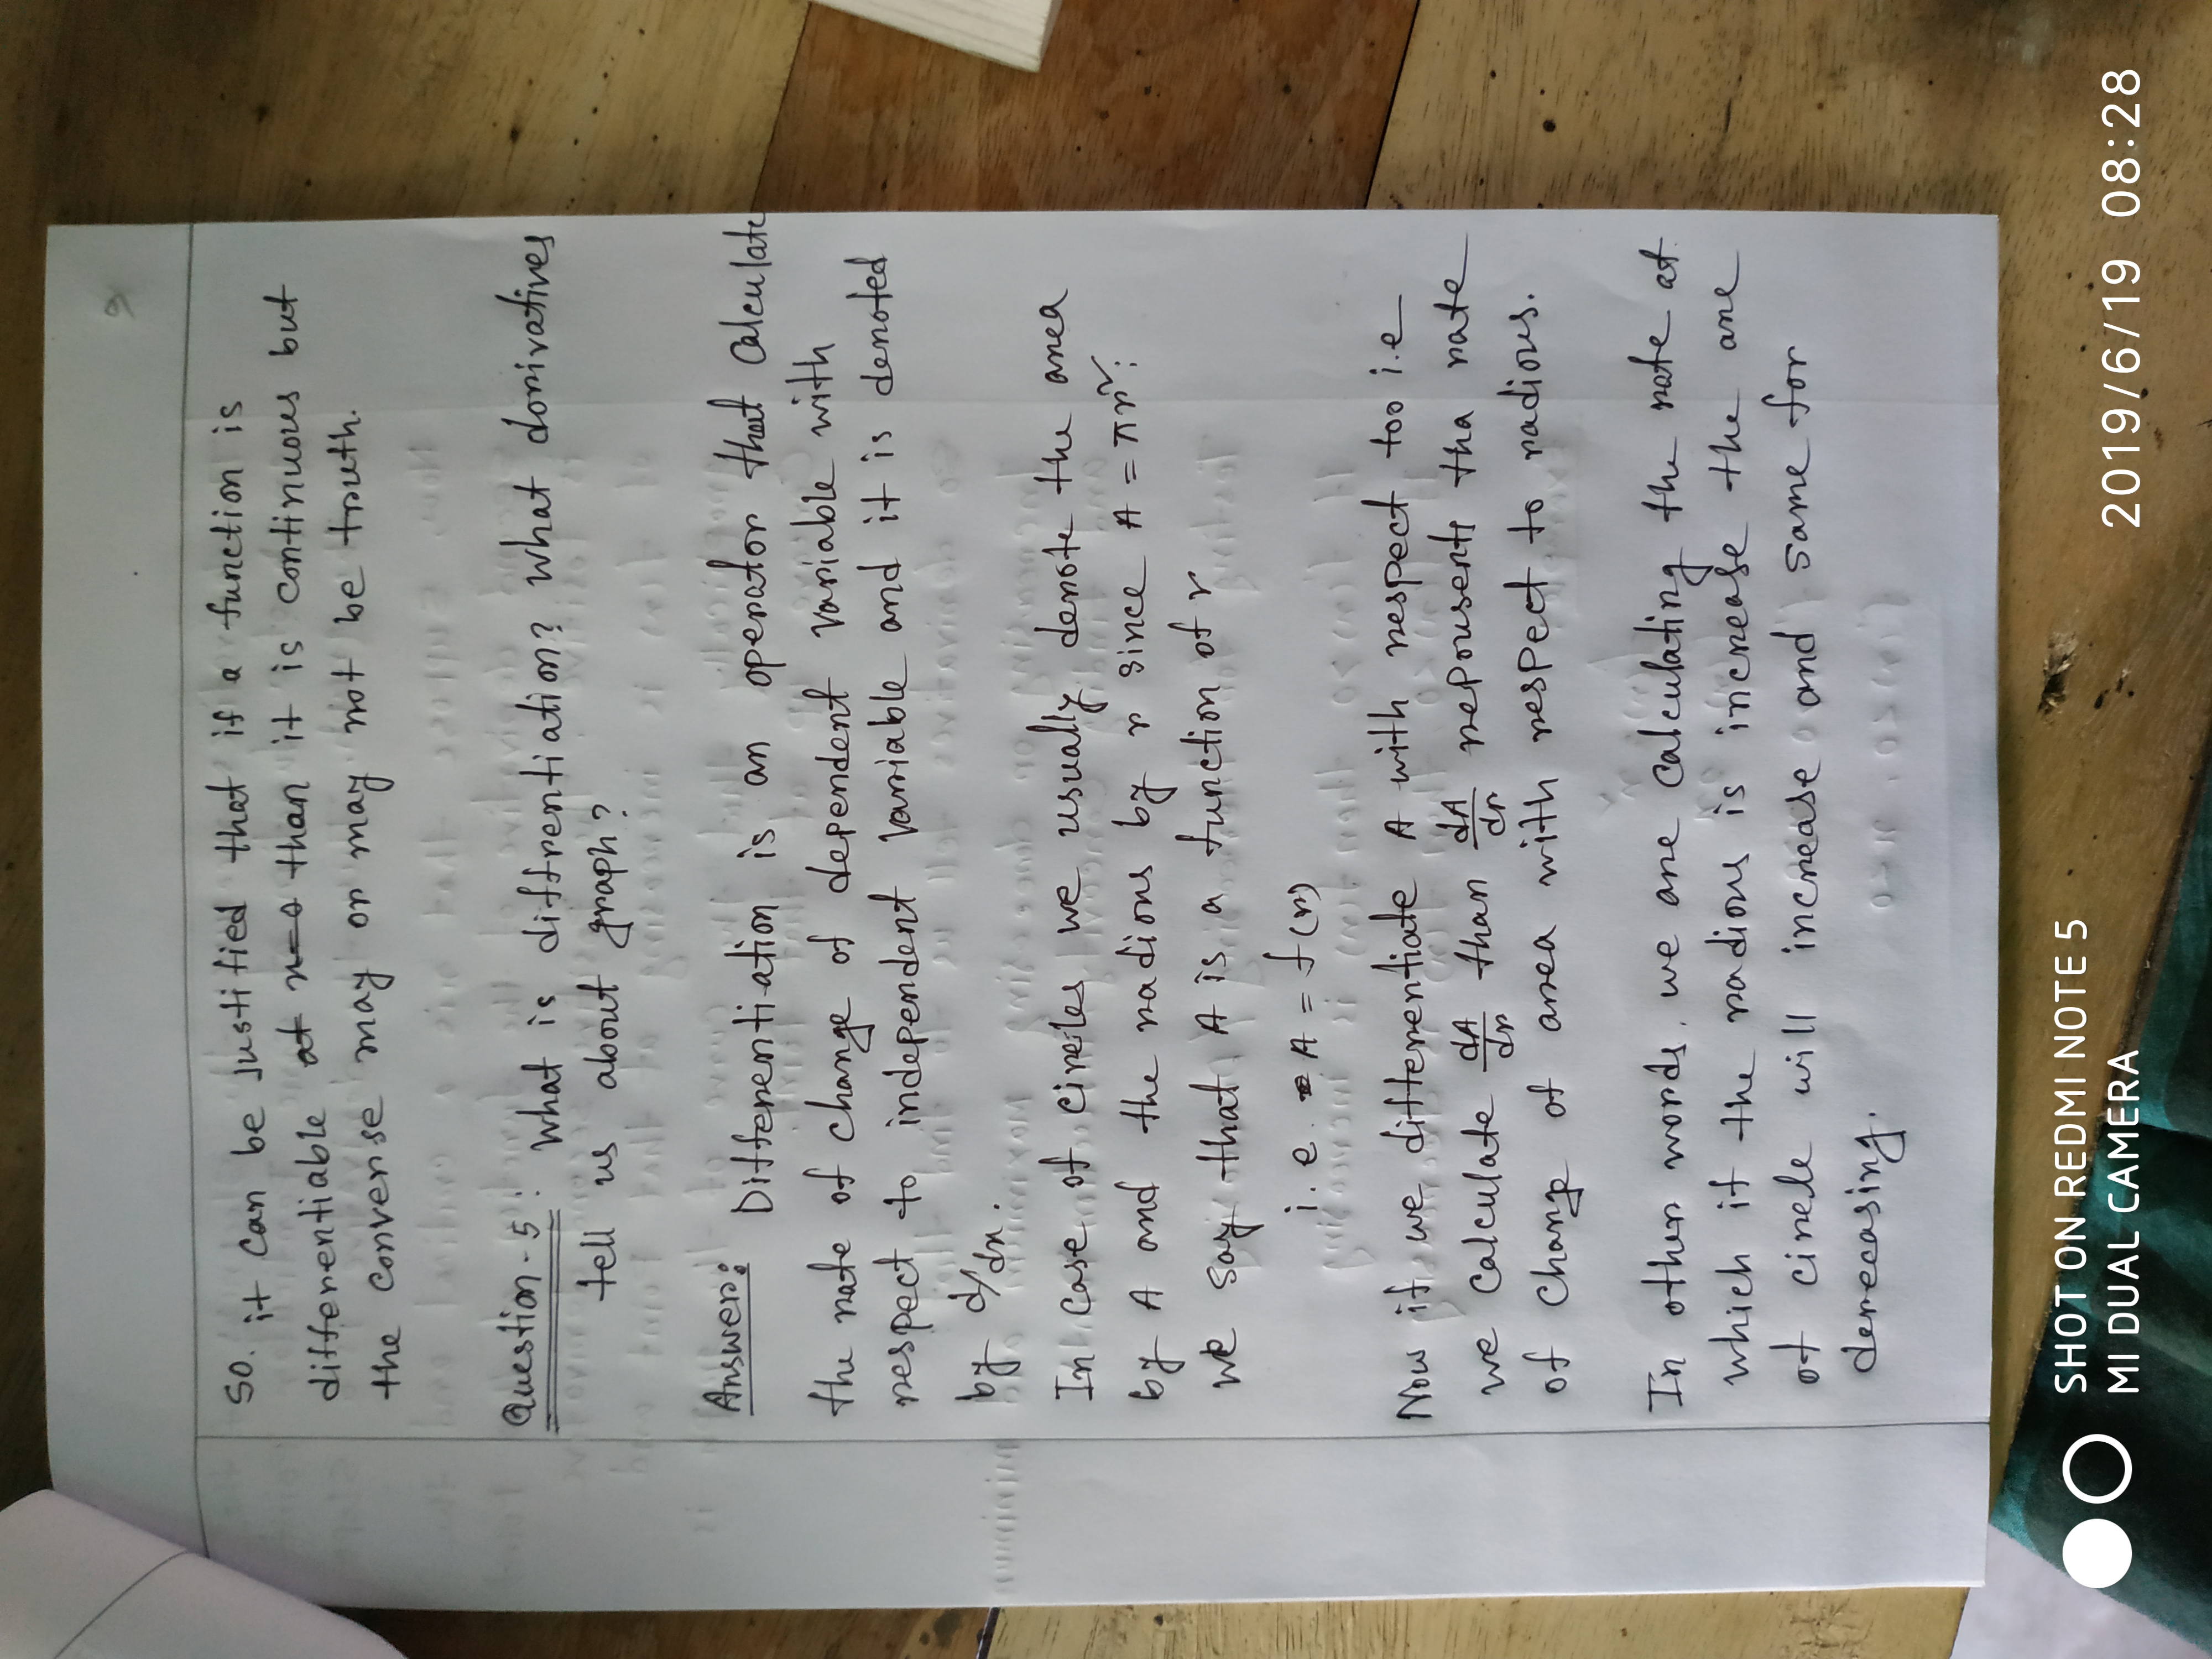 9
So. it can be justified that if a function is
differentiable at x=0 than it is continuous but
the converse may or may not be truth.
Question-5: What is diffrentiation? What dorivatives
tell us about graph?
Answer: Differentiation is an operator that calculate
the rate of change of dependent variable with
respect to independent variable and it is denoted
by d/dx.
In case of circles we usually denote the area
by A and the radious by r since A = πr²:
we say that A is a function of r
i.e. A = f(r)
Now if we differentiate A with respect too i.e
we calculate dA/dr than dA/dr repousents tha rate
of change of area with respect to radious.
In other words, we are calculating the rate at
which if the radious is increase the are
of circle will increase and same for
derecasing.
SHOT ON REDMI NOTE 5
MI DUAL CAMERA
2019/6/19 08:28